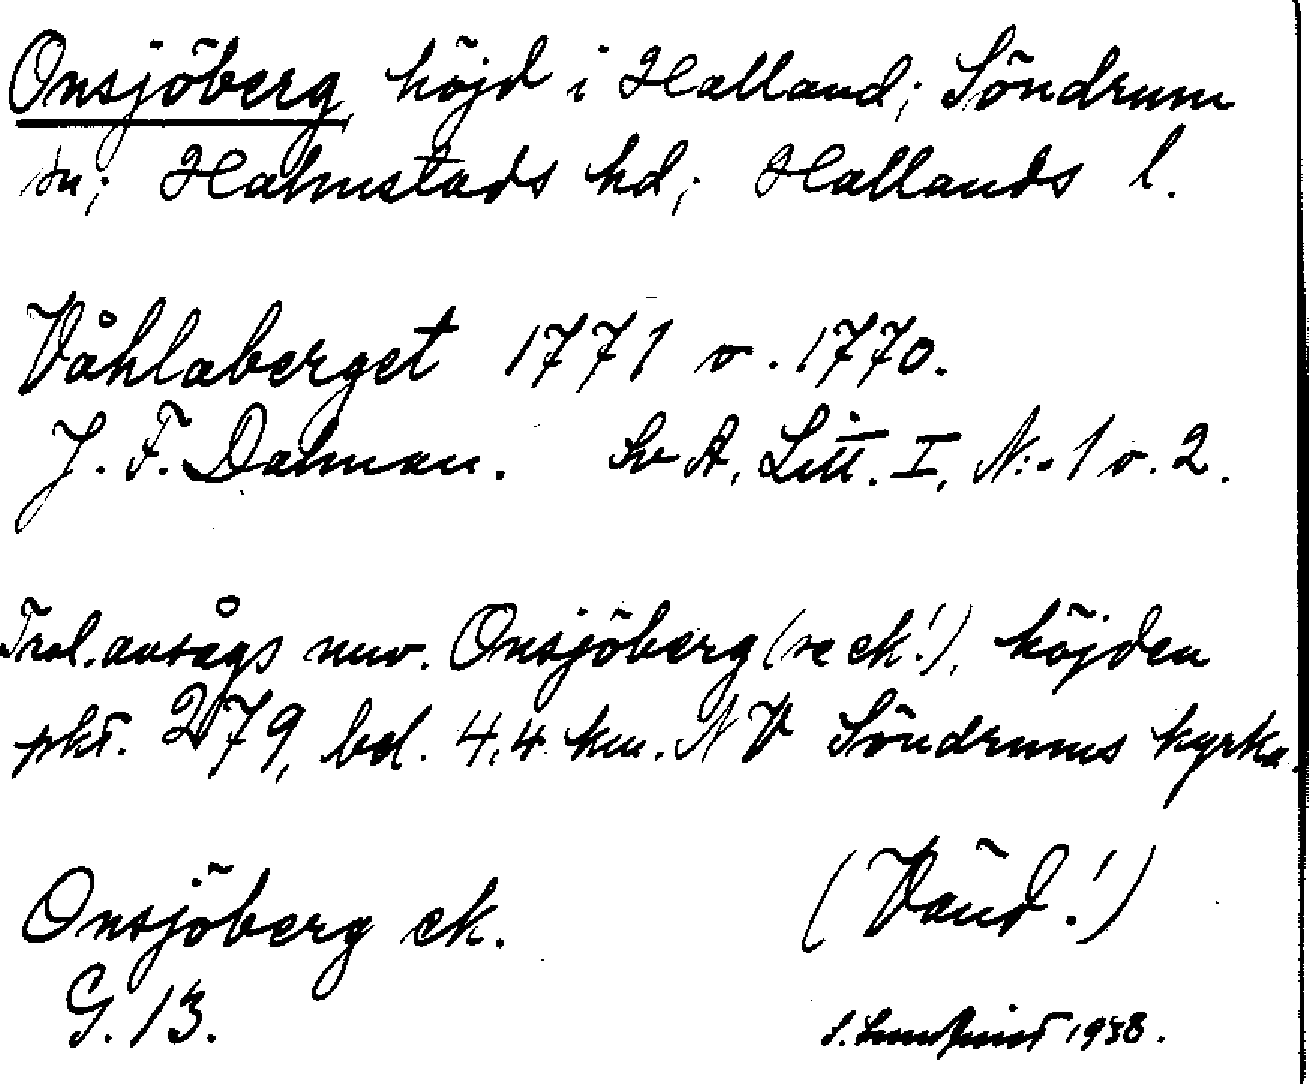 Onsjöberg, höjd i Halland; Söndrum
sn; Halmstads hd; Hallands l.
Våhlaberget 1771 o. 1770.
J. F. Dalman. Sv A, Litt. I, N:o 1 o. 2.
Trol. avsågs nuv. Onsjöberg (se ek!), höjden
pkt. 279, bel. 4,4 km. NV Söndrums kyrka.
Onsjöberg ek. (Vänd!)
G. 13.
S. Lundquist 1938.